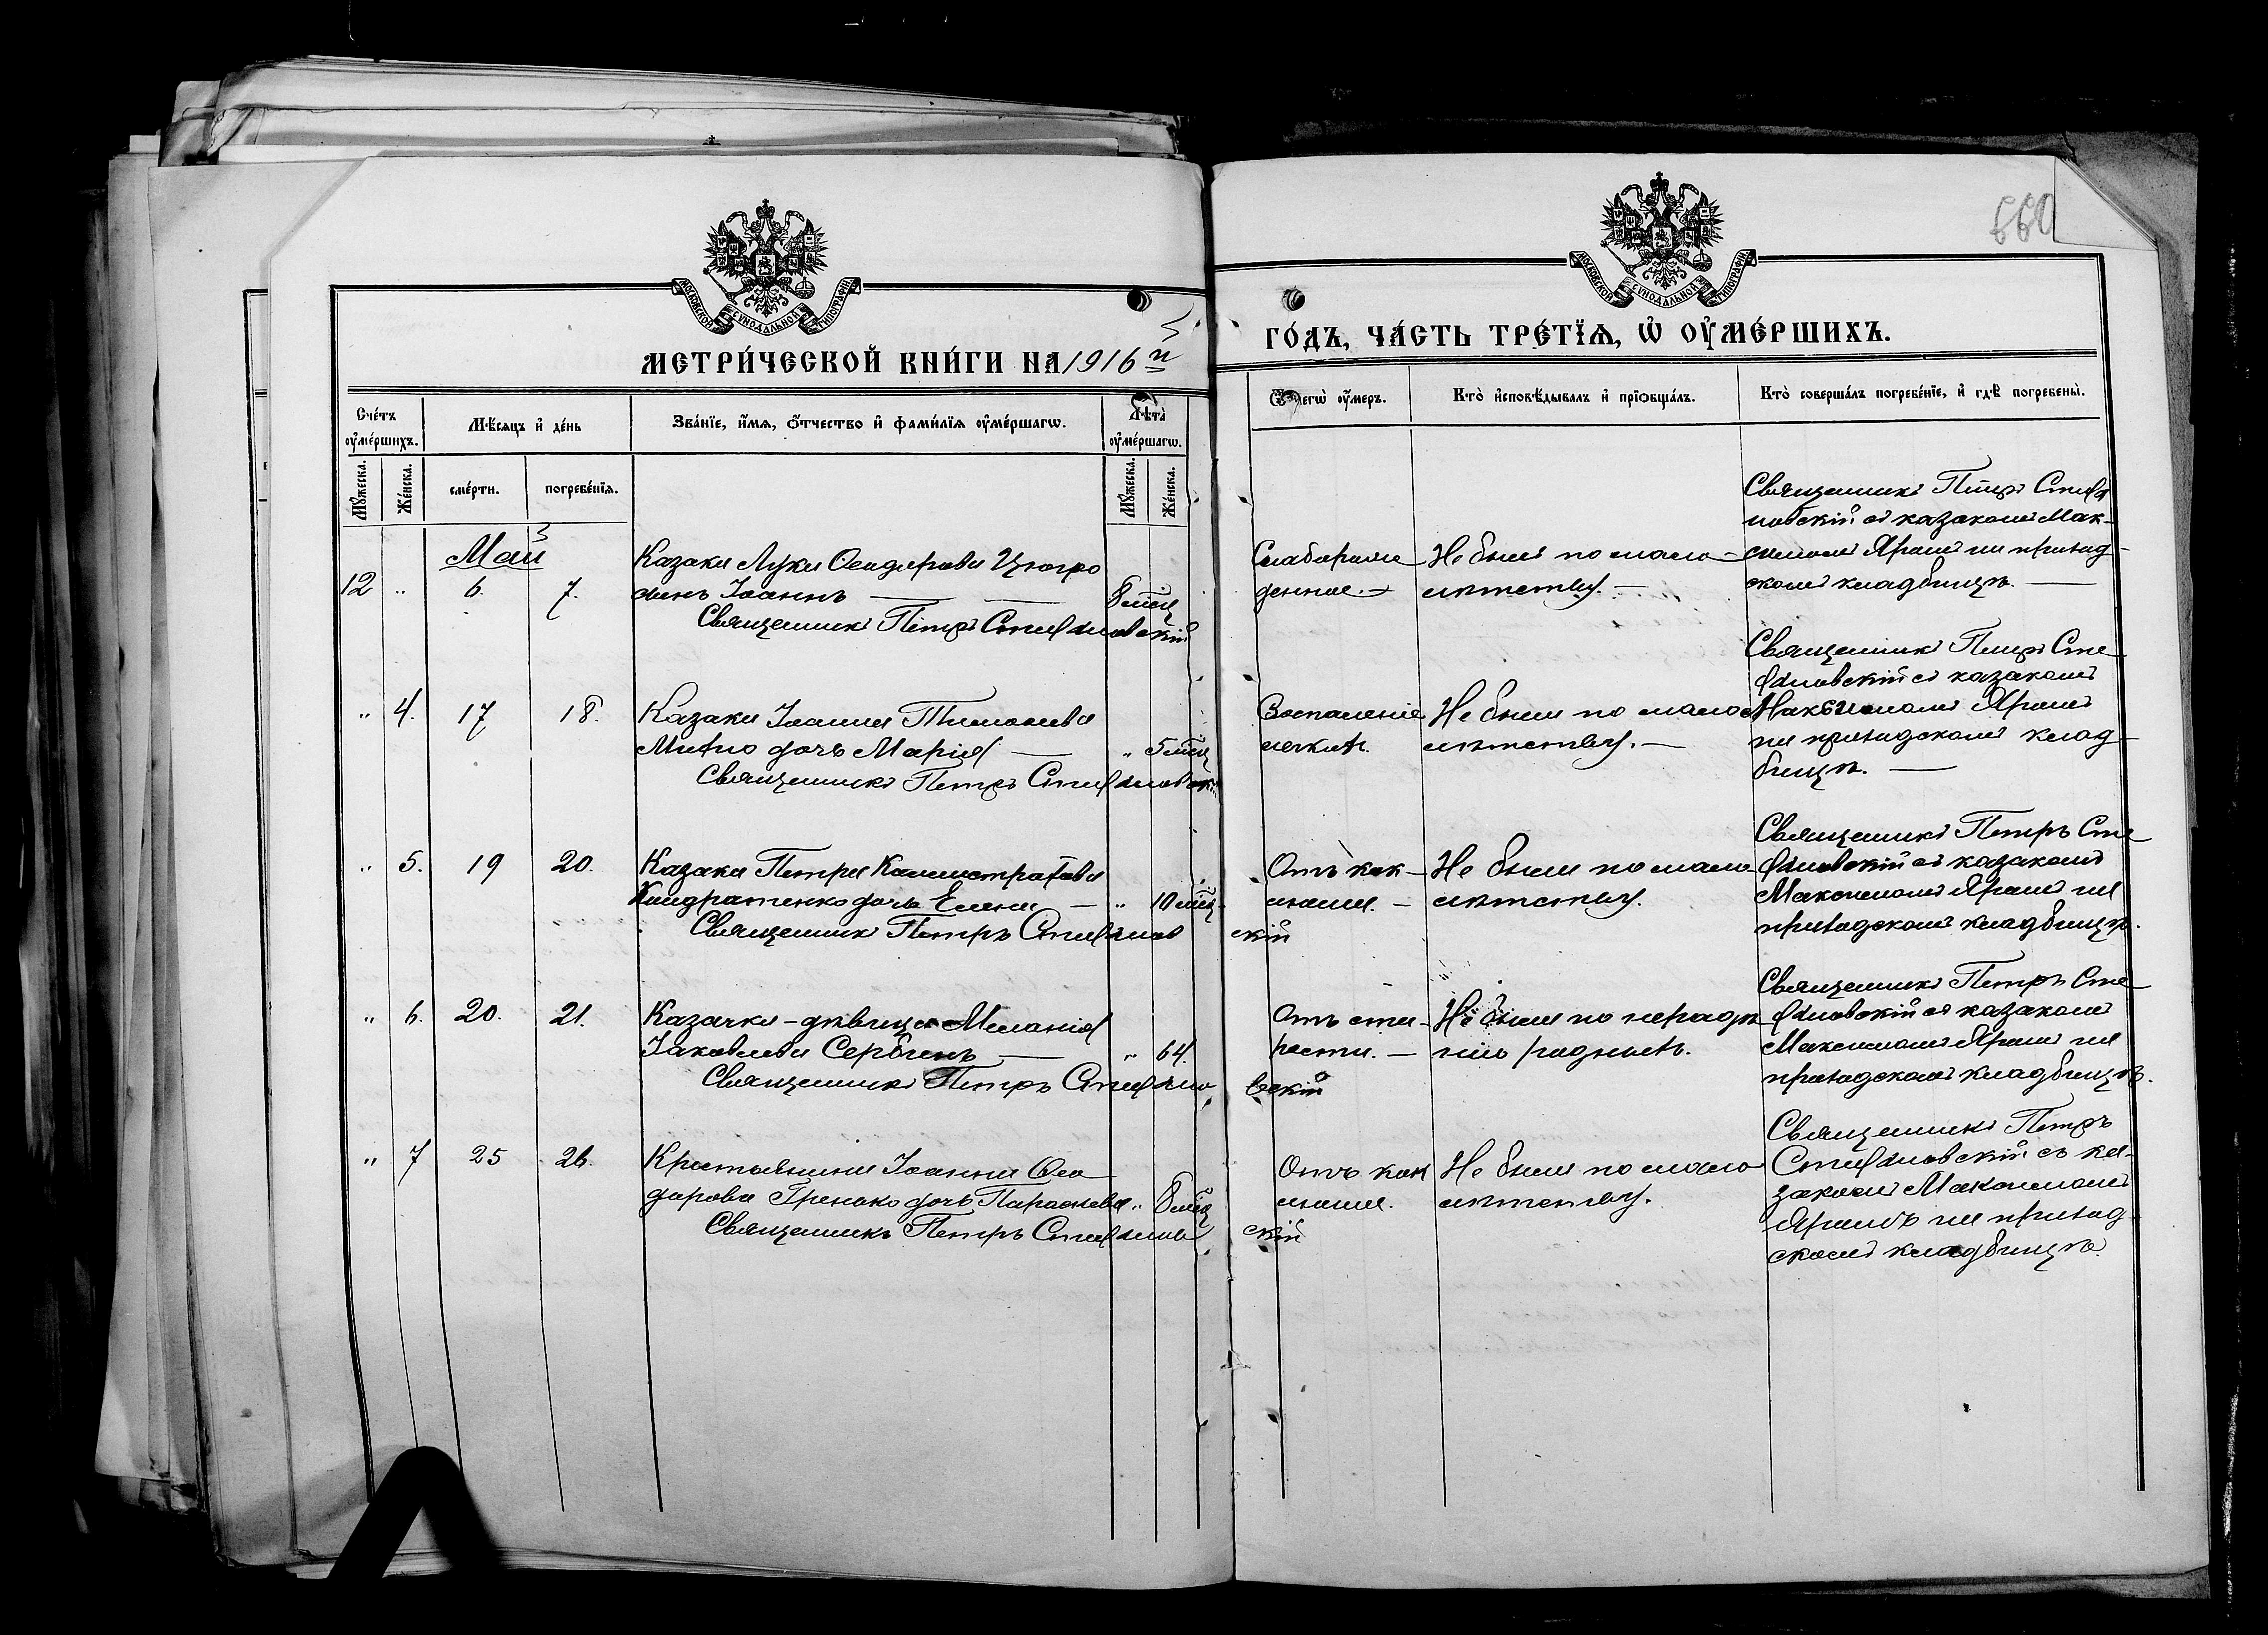 660
МОСКОВСКОЙ СУНОДАЛЬНОЙ ТИПОГРАФІИ
МОСКОВСКОЙ СУНОДАЛЬНОЙ ТИПОГРАФІИ
МЕТРИ́ЧЕСКОЙ КНИ́ГИ НА 1916й
ГО́ДЪ, ЧА́СТЬ ТРЕ́ТЇѦ, Ѡ҆ ОУ҆МЕ́РШИХЪ.
Сче́тъ оу҆ме́ршихъ.
Мѣ́сяцъ и҆ де́нь
Зва́нїе, и҆́мя, ѻ҆́тчество и҆ фами́лїя оу҆ме́ршагѡ.
Лѣ́та оу҆ме́ршагѡ.
Мꙋ́жеска.
Же́нска.
сме́рти.
погребе́нїя.
Мꙋ́жеска.
Же́нска.
Ѿ чегѡ̀ оу҆́меръ.
Кто̀ и҆сповѣ́дывалъ и҆ прїѡбща́лъ.
Кто̀ соверша́лъ погребе́нїе, и҆ гдѣ̀ погребены̀.
Май
12 " 6. 7.
Казака Луки Ѳеодорова Цюпро
сынъ Іоаннъ — — 8 мѣс
Священникъ Петръ Стефановскій
Слаборожде
денное. —
Не былъ по мало-
лѣтству. —
Священникъ Петръ Стефа
новскій съ казакомъ Мак-
симомъ Яромъ на приход-
скомъ кладбищѣ. —
" 4. 17 18.
Казака Іоанна Тимоѳеева
Митло дочь Марія — " 5 мѣс
Священникъ Петръ Стефановскій
Воспаленіе
легкихъ.
Не была по мало
лѣтству. —
Священникъ Петръ Сте
фановскій съ казакомъ
Максимомъ Яромъ
на приходскомъ клад-
бищѣ. —
" 5. 19 20.
Казака Петра Каллистратова
Кондратенко дочь Елена — " 10 мѣс
Священникъ Петръ Стефанов
скій
Отъ как-
шаля. —
Не была по мало-
лѣтству.
Священникъ Петръ Сте
фановскій съ казакомъ
Максимомъ Яромъ на
приходскомъ кладбищѣ.
" 6. 20. 21.
Казачка-дѣвица Меланія
Іаковлева Сербинъ — " 64.
Священникъ Петръ Стефано
вскій
Отъ ста-
рости. —
Не была по нерадѣ-
нію родныхъ.
Священникъ Петръ Сте
фановскій съ казакомъ
Максимомъ Яромъ на
приходскомъ кладбищѣ.
" 7 25 26.
Крестьянина Іоанна Ѳео
дорова Гренько дочь Параскева " 8 мѣс
Священникъ Петръ Стефанов
скій
Отъ как
шаля.
Не была по мало
лѣтству.
Священникъ Петръ
Стефановскій съ ка-
закомъ Максимомъ
Яромъ на приход-
скомъ кладбищѣ.